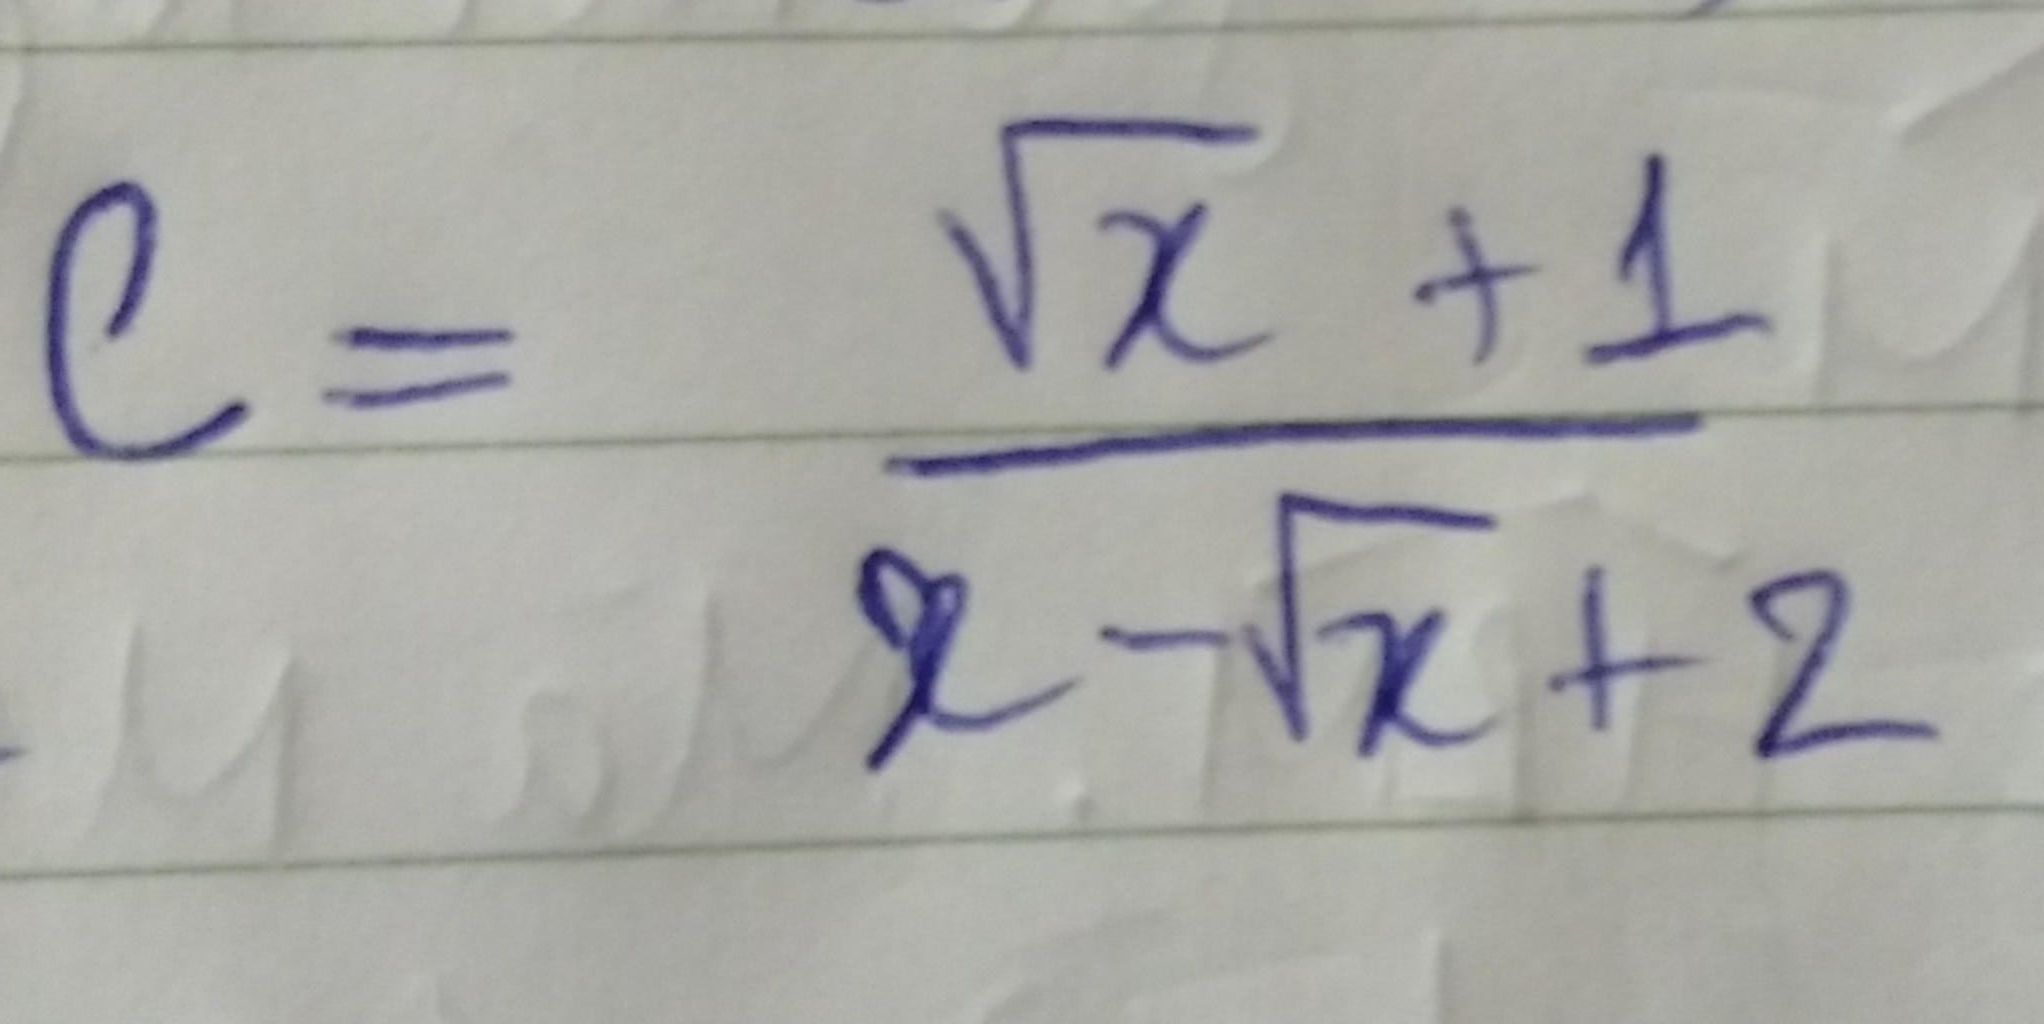 C = (√x + 1) / (x - √x + 2)